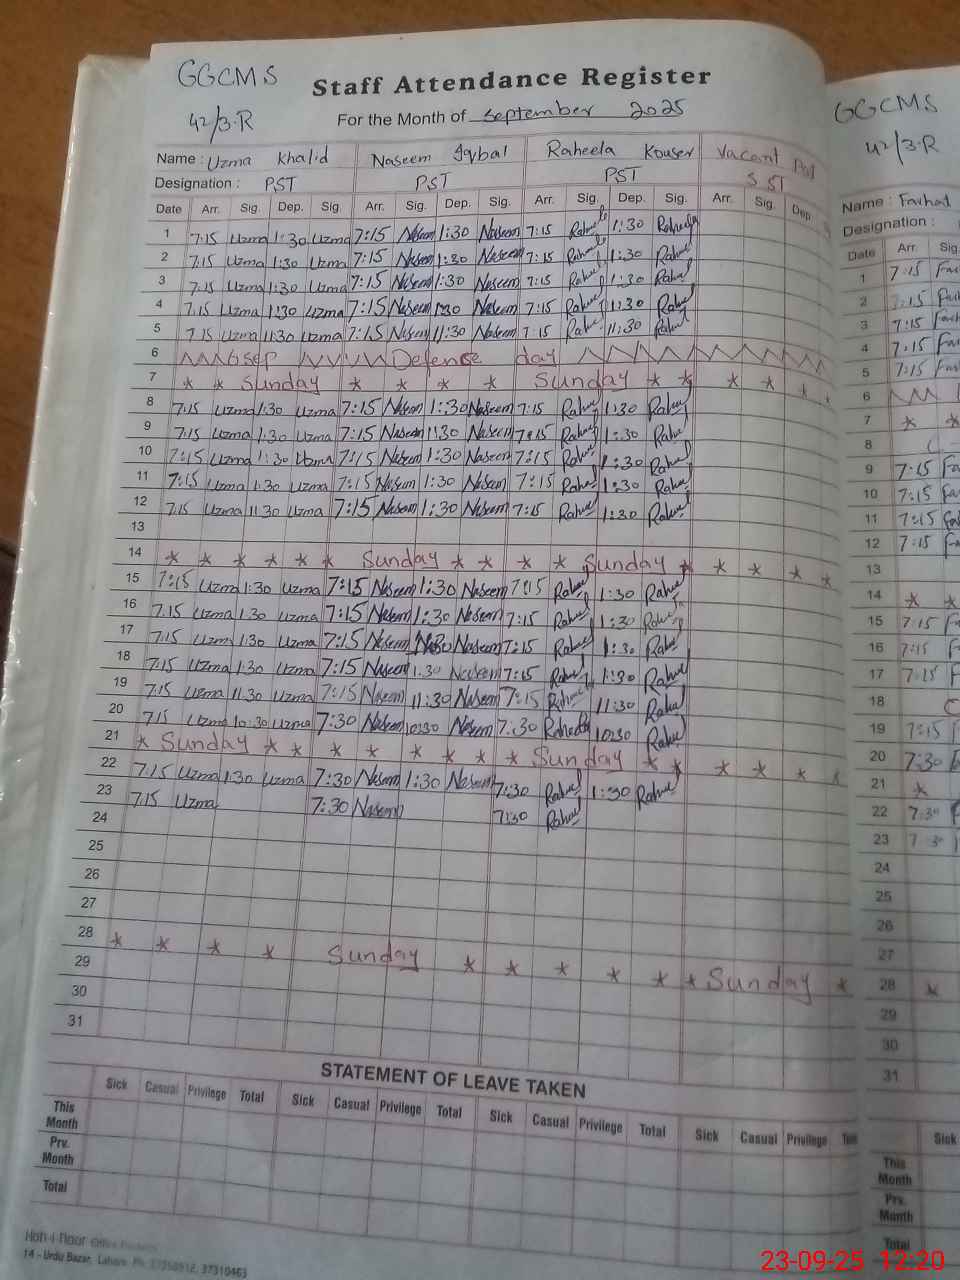 GGCMS
Staff Attendance Register
42/3-R
For the Month of September 2025
Name : Uzma Khalid Naseem Iqbal Raheela Kouser Vacant Post
Designation : PST PST PST SST
Date Arr. Sig. Dep. Sig. Arr. Sig. Dep. Sig. Arr. Sig. Dep. Sig. Arr. Sig. Dep.
1 7:15 Uzma 1:30 Uzma 7:15 Naseem 1:30 Naseem 7:15 1:30
2 7:15 Uzma 1:30 Uzma 7:15 Naseem 1:30 Naseem 7:15 1:30
3 7:15 Uzma 1:30 Uzma 7:15 Naseem 1:30 Naseem 7:15 1:30
4 7:15 Uzma 1:30 Uzma 7:15 Naseem 1:30 Naseem 7:15 11:30
5 7:15 Uzma 11:30 Uzma 7:15 Naseem 11:30 Naseem 7:15 11:30
6 6 sep Defense day
7 * * Sunday * * * * Sunday * * * * * *
8 7:15 Uzma 1:30 Uzma 7:15 Naseem 1:30 Naseem 7:15 1:30
9 7:15 Uzma 1:30 Uzma 7:15 Naseem 1:30 Naseem 7:15 1:30
10 7:15 Uzma 1:30 Uzma 7:15 Naseem 1:30 Naseem 7:15 1:30
11 7:15 Uzma 1:30 Uzma 7:15 Naseem 1:30 Naseem 7:15 1:30
12 7:15 Uzma 11:30 Uzma 7:15 Naseem 1:30 Naseem 7:15 1:30
13
14 * * * * * Sunday * * * * Sunday * * * * *
15 7:15 Uzma 1:30 Uzma 7:15 Naseem 1:30 Naseem 7:15 1:30
16 7:15 Uzma 1:30 Uzma 7:15 Naseem 1:30 Naseem 7:15 1:30
17 7:15 Uzma 1:30 Uzma 7:15 Naseem Naseem 7:15 1:30
18 7:15 Uzma 1:30 Uzma 7:15 Naseem 1:30 Naseem 7:15 1:30
19 7:15 Uzma 11:30 Uzma 7:15 Naseem 11:30 Naseem 7:15 11:30
20 7:15 Uzma 10:30 Uzma 7:30 Naseem 10:30 Naseem 7:30 Raheela 10:30
21 * Sunday * * * * * * * Sunday * * * * * *
22 7:15 Uzma 1:30 Uzma 7:30 Naseem 1:30 Naseem 7:30 1:30
23 7:15 Uzma 7:30 Naseem 7:30
24
25
26
27
28 * * * * Sunday * * * * * * Sunday *
29
30
31
STATEMENT OF LEAVE TAKEN
Sick Casual Privilege Total Sick Casual Privilege Total Sick Casual Privilege Total Sick Casual Privilege
This Month
Prv. Month
Total
14 - Urdu Bazar, Lahore. Ph: 37310463
GGCMS
42/3-R
Name : Farhat
Designation :
Date Arr. Sig.
1 7:15
2 7:15
3 7:15
4 7:15
5 7:15
6
7 * *
8
9 7:15
10 7:15
11 7:15
12 7:15
13
14 * *
15 7:15
16 7:15
17 7:15
18
19 7:15
20 7:30
21 *
22 7:30
23 7:30
24
25
26
27
28 *
29
30
31
Sick
This Month
Prv. Month
Total
23-09-25 12:20